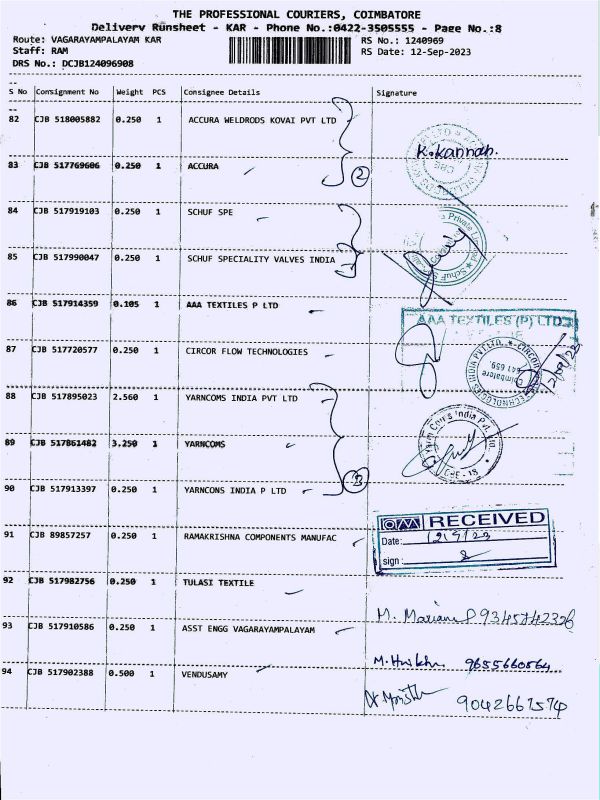 THE PROFESSIONAL COURIERS, COIMBATORE
Delivery Runsheet - KAR - Phone No.:0422-3505555 - Page No.:8
Route: VAGARAYAMPALAYAM KAR RS No.: 1240969
Staff: RAM RS Date: 12-Sep-2023
DRS No.: DCJB124096908
S No Consignment No Weight PCS Consignee Details Signature
82 CJB 518005882 0.250 1 ACCURA WELDRODS KOVAI PVT LTD
K. Kannan.
83 CJB 517769606 0.250 1 ACCURA 2
84 CJB 517919103 0.250 1 SCHUF SPE
85 CJB 517990047 0.250 1 SCHUF SPECIALITY VALVES INDIA
86 CJB 517914359 0.105 1 AAA TEXTILES P LTD
AAA TEXTILES (P) LTD
87 CJB 517720577 0.250 1 CIRCOR FLOW TECHNOLOGIES
Coimbatore
641 659
88 CJB 517895023 2.560 1 YARNCOMS INDIA PVT LTD
89 CJB 517861482 3.250 1 YARNCOMS 3
CBE-18
90 CJB 517913397 0.250 1 YARNCONS INDIA P LTD
RECEIVED
91 CJB 89857257 0.250 1 RAMAKRISHNA COMPONENTS MANUFAC
Date: 12/9/23
sign:
92 CJB 517982756 0.250 1 TULASI TEXTILE
93 CJB 517910586 0.250 1 ASST ENGG VAGARAYAMPALAYAM
94 CJB 517902388 0.500 1 VENDUSAMY
9655660564
9042661574